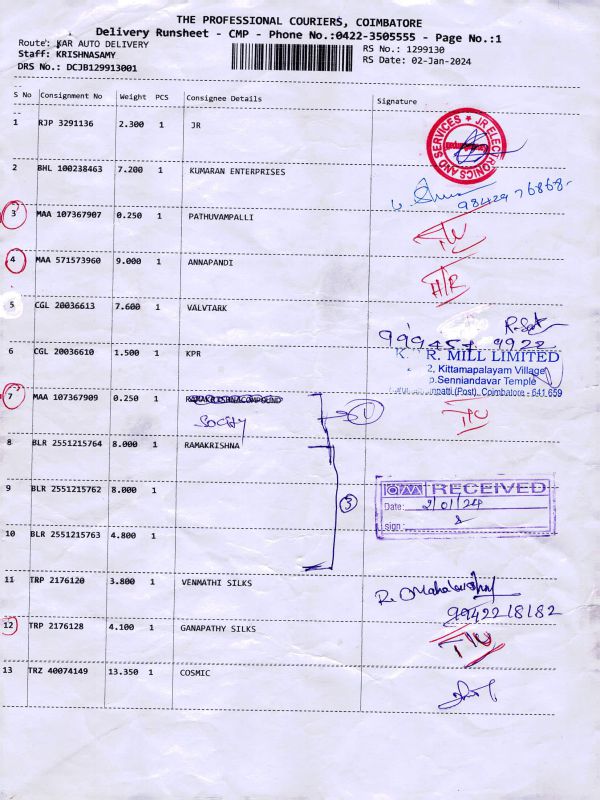 THE PROFESSIONAL COURIERS, COIMBATORE
Delivery Runsheet - CMP - Phone No.:0422-3505555 - Page No.:1
Route: KAR AUTO DELIVERY
Staff: KRISHNASAMY
DRS No.: DCJB129913001
RS No.: 1299130
RS Date: 02-Jan-2024
S No Consignment No Weight PCS Consignee Details Signature
1 RJP 3291136 2.300 1 JR
JR ELECTRONICS AND SERVICES
2 BHL 100238463 7.200 1 KUMARAN ENTERPRISES
9842976868
3 MAA 107367907 0.250 1 PATHUVAMPALLI
4 MAA 571573960 9.000 1 ANNAPANDI
H/R
5 CGL 20036613 7.600 1 VALVTARK
6 CGL 20036610 1.500 1 KPR
R. MILL LIMITED
2, Kittamapalayam Village
Senniandavar Temple
(Post), Coimbatore - 641 659
7 MAA 107367909 0.250 1
Society
1
8 BLR 2551215764 8.000 1 RAMAKRISHNA
9 BLR 2551215762 8.000 1
3
RECEIVED
Date: 2/01/24
sign :
10 BLR 2551215763 4.800 1
11 TRP 2176120 3.800 1 VENMATHI SILKS
9942218182
12 TRP 2176128 4.100 1 GANAPATHY SILKS
13 TRZ 40074149 13.350 1 COSMIC